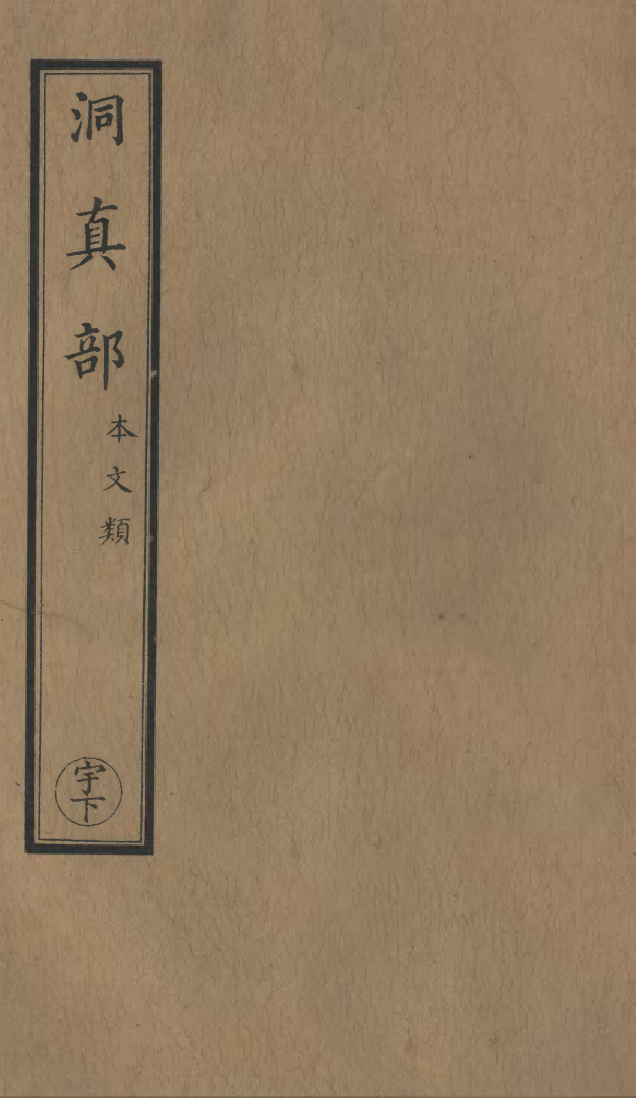 洞真部
本文類
宇下